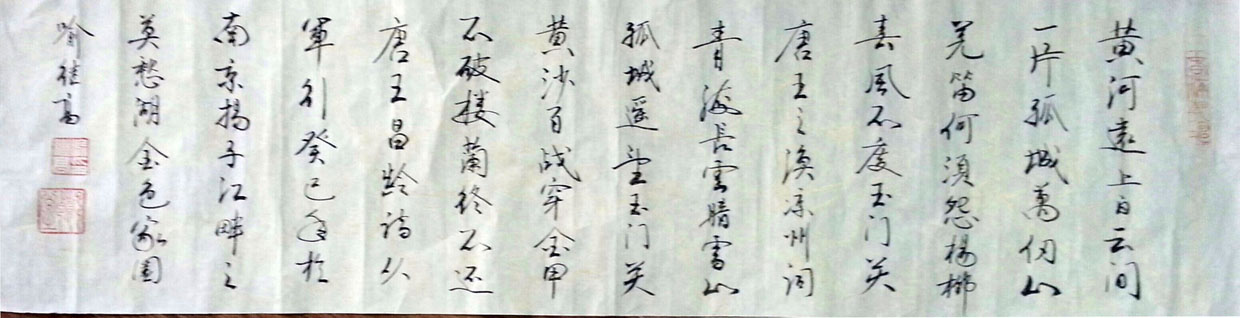 黄河遠上白云间
一片孤城萬仞山
羌笛何須怨楊柳
春風不度玉门关
唐王之渙凉州词
青海長雲暗雪山
孤城遥望玉门关
黄沙百战穿金甲
不破楼蘭终不还
唐王昌龄诗从
軍行癸巳年於
南京揚子江畔之
莫愁湖金色家園
喻继高